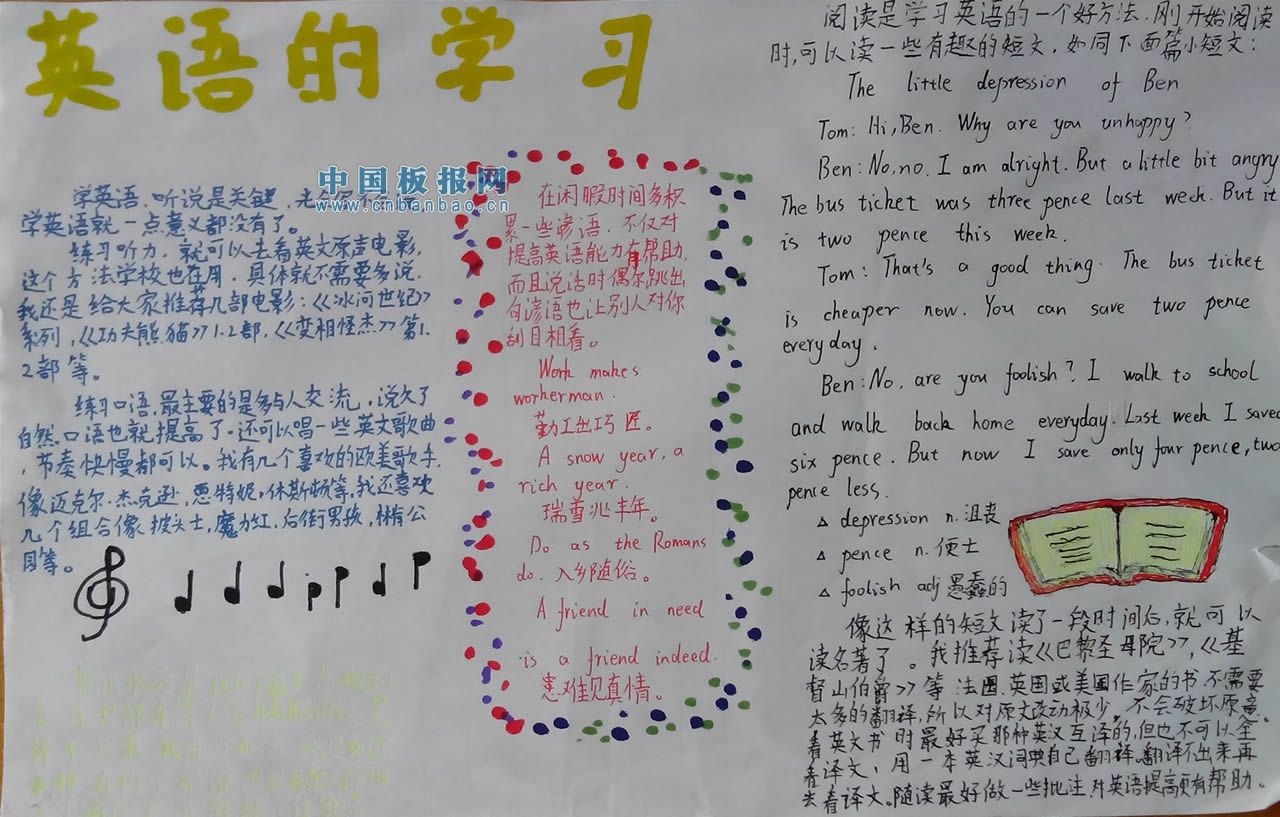 英语的学习
中国板报网
www.cnbanbao.cn
学英语，听说是关键，
学英语就一点意义都没有了。
练习听力，就可以去看英文原声电影，
这个方法学校也在用，具体就不需要多说，
我还是给大家推荐几部电影：《冰河世纪》
系列，《功夫熊猫》1.2部，《变相怪杰》第1.
2部等。
练习口语，最主要的是多与人交流，说久了
自然口语也就提高了。还可以唱一些英文歌曲
，节奏快慢都可以。我有几个喜欢的欧美歌手，
像迈克尔·杰克逊，惠特妮·休斯顿等，我还喜欢
几个组合像披头士，魔力红，后街男孩，林肯公
园等。
在闲暇时间多积
累一些谚语，不仅对
提高英语能力有帮助，
而且说话时偶尔跳出
句谚语也让别人对你
刮目相看。
Work makes
workerman.
勤工出巧匠。
A snow year, a
rich year.
瑞雪兆丰年。
Do as the Romans
do. 入乡随俗。
A friend in need
is a friend indeed.
患难见真情。
阅读是学习英语的一个好方法，刚开始阅读
时，可以读一些有趣的短文，如同下面篇小短文：
The little depression of Ben
Tom: Hi, Ben. Why are you unhappy?
Ben: No, no. I am alright. But a little bit angry
The bus ticket was three pence last week. But it
is two pence this week.
Tom: That's a good thing. The bus ticket
is cheaper now. You can save two pence
everyday.
Ben: No, are you foolish? I walk to school
and walk back home everyday. Last week I saved
six pence. But now I save only four pence, two
pence less.
△ depression n. 沮丧
△ pence n. 便士
△ foolish adj 愚蠢的
像这样的短文读了一段时间后，就可以
读名著了。我推荐读《巴黎圣母院》，《基
督山伯爵》等法国、英国或美国作家的书，不需要
太多的翻译，所以对原文改动极少，不会破坏原意。
看英文书时最好买那种英汉互译的，但也不可以全
看译文，用一本英汉词典自己翻译，翻译不出来再
去看译文。随读最好做一些批注，对英语提高更有帮助。